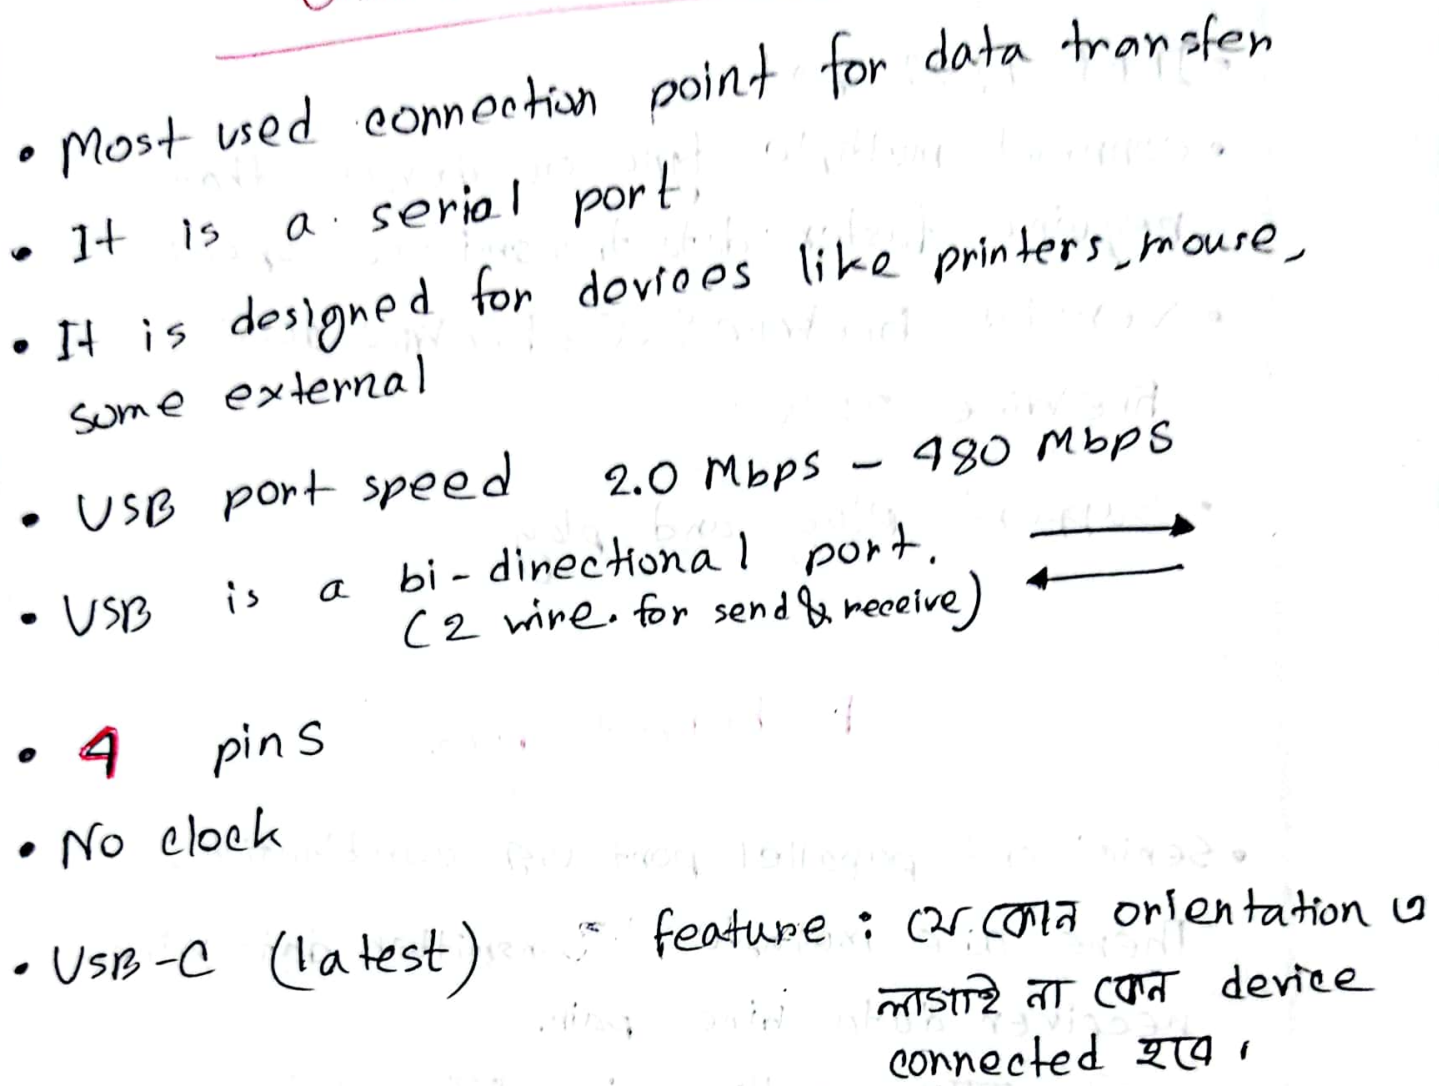 • Most used connection point for data transfer
• It is a serial port.
• It is designed for devices like printers, mouse,
some external
• USB port speed 2.0 Mbps - 480 Mbps
• USB is a bi-directional port.
(2 wire. for send & receive)
• 4 pins
• No clock
• USB-C (latest) feature : যে কোন orientation এ
লাগাই না কেন device
connected হবে।